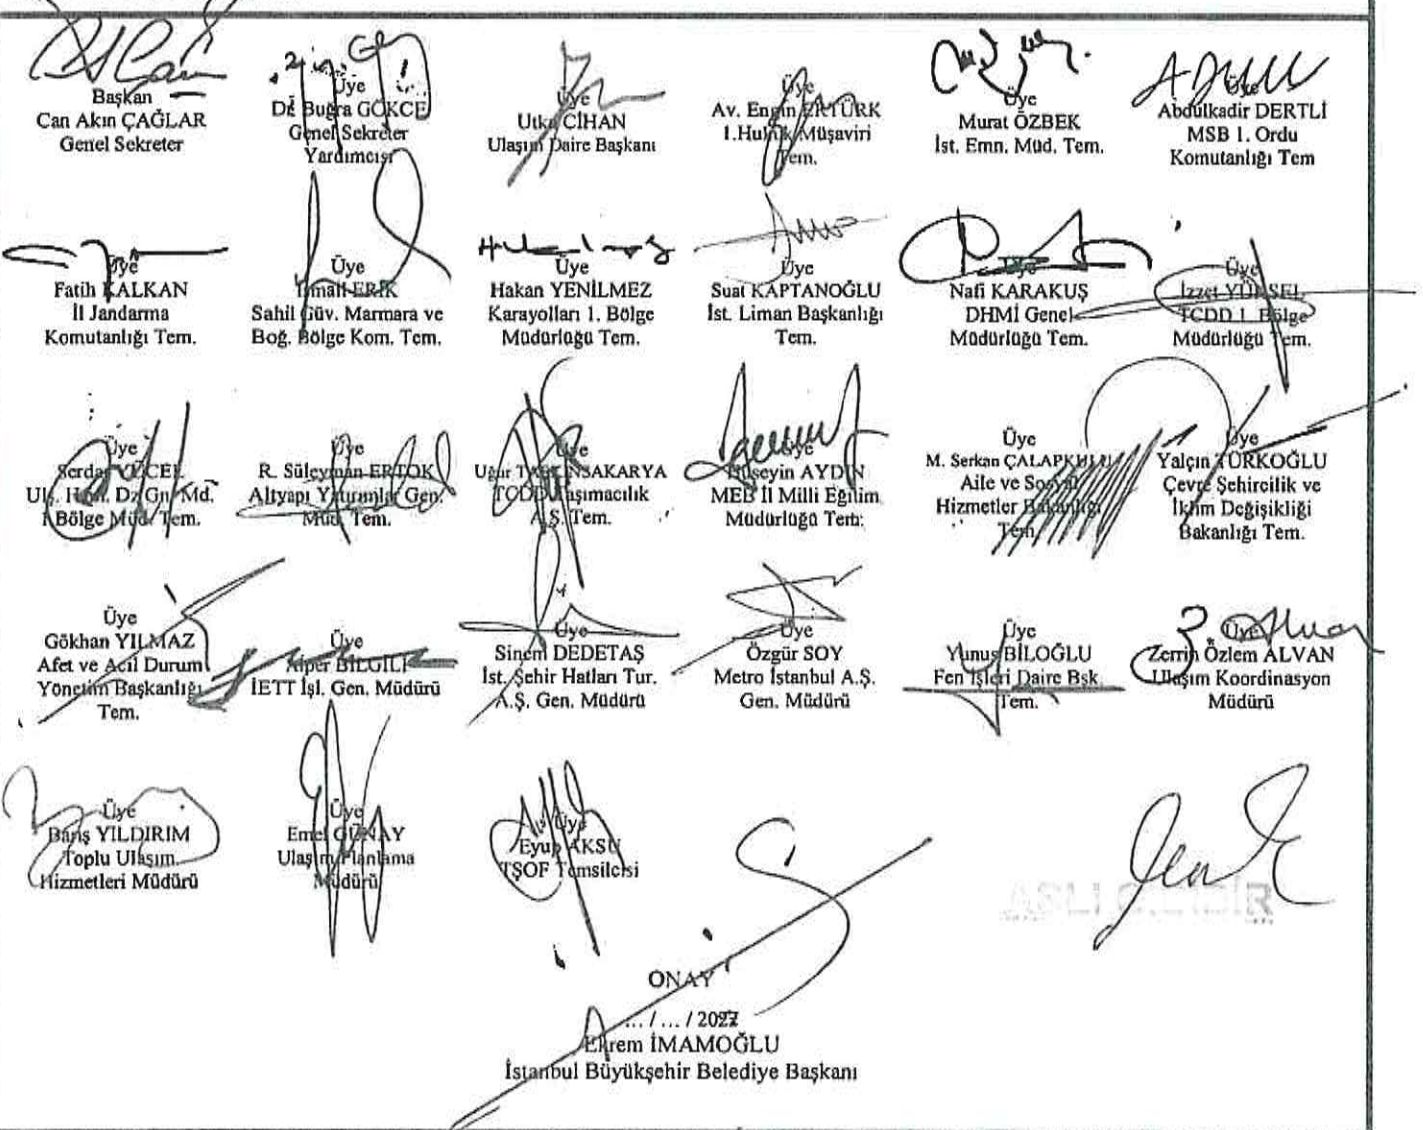 Başkan
Can Akın ÇAĞLAR
Genel Sekreter
Üye
Dr. Buğra GÖKCE
Genel Sekreter
Yardımcısı
Üye
Utku CİHAN
Ulaşım Daire Başkanı
Üye
Av. Engin ERTÜRK
1.Hukuk Müşaviri
Tem.
Üye
Murat ÖZBEK
İst. Emn. Müd. Tem.
Üye
Abdulkadir DERTLİ
MSB 1. Ordu
Komutanlığı Tem
Üye
Fatih KALKAN
İl Jandarma
Komutanlığı Tem.
Üye
İsmail ERİK
Sahil Güv. Marmara ve
Boğ. Bölge Kom. Tem.
Üye
Hakan YENİLMEZ
Karayolları 1. Bölge
Müdürlüğü Tem.
Üye
Suat KAPTANOĞLU
İst. Liman Başkanlığı
Tem.
Üye
Nafi KARAKUŞ
DHMİ Genel
Müdürlüğü Tem.
Üye
İzzet YÜKSEL
TCDD 1. Bölge
Müdürlüğü Tem.
Üye
Serdar YÜCEL
Ulş. Dz Gn. Md.
Bölge Müd. Tem.
Üye
R. Süleyman ERTOK
Altyapı Yatırımlar Gen.
Müd. Tem.
Üye
Uğur
TCDD Taşımacılık
A.Ş. Tem.
Üye
Hüseyin AYDIN
MEB İl Milli Eğitim
Müdürlüğü Tem.
Üye
M. Serkan
Aile ve Sosyal
Hizmetler Bakanlığı
Tem.
Üye
Yalçın TÜRKOĞLU
Çevre Şehircilik ve
İklim Değişikliği
Bakanlığı Tem.
Üye
Gökhan YILMAZ
Afet ve Acil Durum
Yönetim Başkanlığı
Tem.
Üye
Alper BİLGİLİ
İETT İşl. Gen. Müdürü
Üye
Sinem DEDETAŞ
İst. Şehir Hatları Tur.
A.Ş. Gen. Müdürü
Üye
Özgür SOY
Metro İstanbul A.Ş.
Gen. Müdürü
Üye
Yunus BİLOĞLU
Fen İşleri Daire Bşk.
Tem.
Üye
Zerrin Özlem ALVAN
Ulaşım Koordinasyon
Müdürü
Üye
Barış YILDIRIM
Toplu Ulaşım
Hizmetleri Müdürü
Üye
Emel GÜNAY
Ulaşım Planlama
Müdürü
Üye
Eyup AKSU
TŞOF Temsilcisi
ASLI GİBİDİR
ONAY
... / ... / 2022
Ekrem İMAMOĞLU
İstanbul Büyükşehir Belediye Başkanı